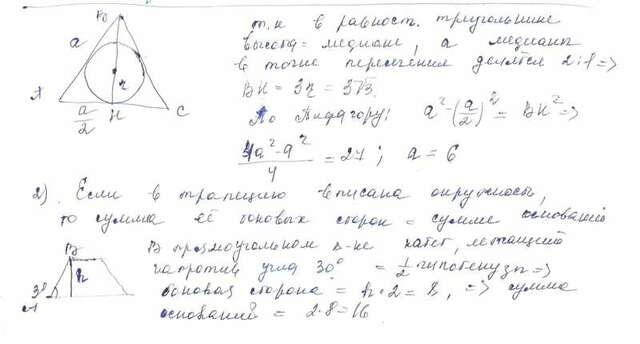 B
a
r
A
a/2
H
C
т.к в равност. треугольнике
высота = медиане, а медианы
в точке пересечения делятся 2:1 =>
BH = 3r = 3√3.
По Пифагору: a² - (a/2)² = BH² =>
(4a² - a²)/4 = 27 ; a = 6
2). Если в трапецию вписана окружность,
то сумма её боковых сторон = сумме оснований
B
h
30°
A
В прямоугольном Δ-не катет, лежащий
напротив угла 30° = 1/2 гипотенузы =>
боковая сторона = h·2 = 8, => сумма
оснований = 2·8 = 16